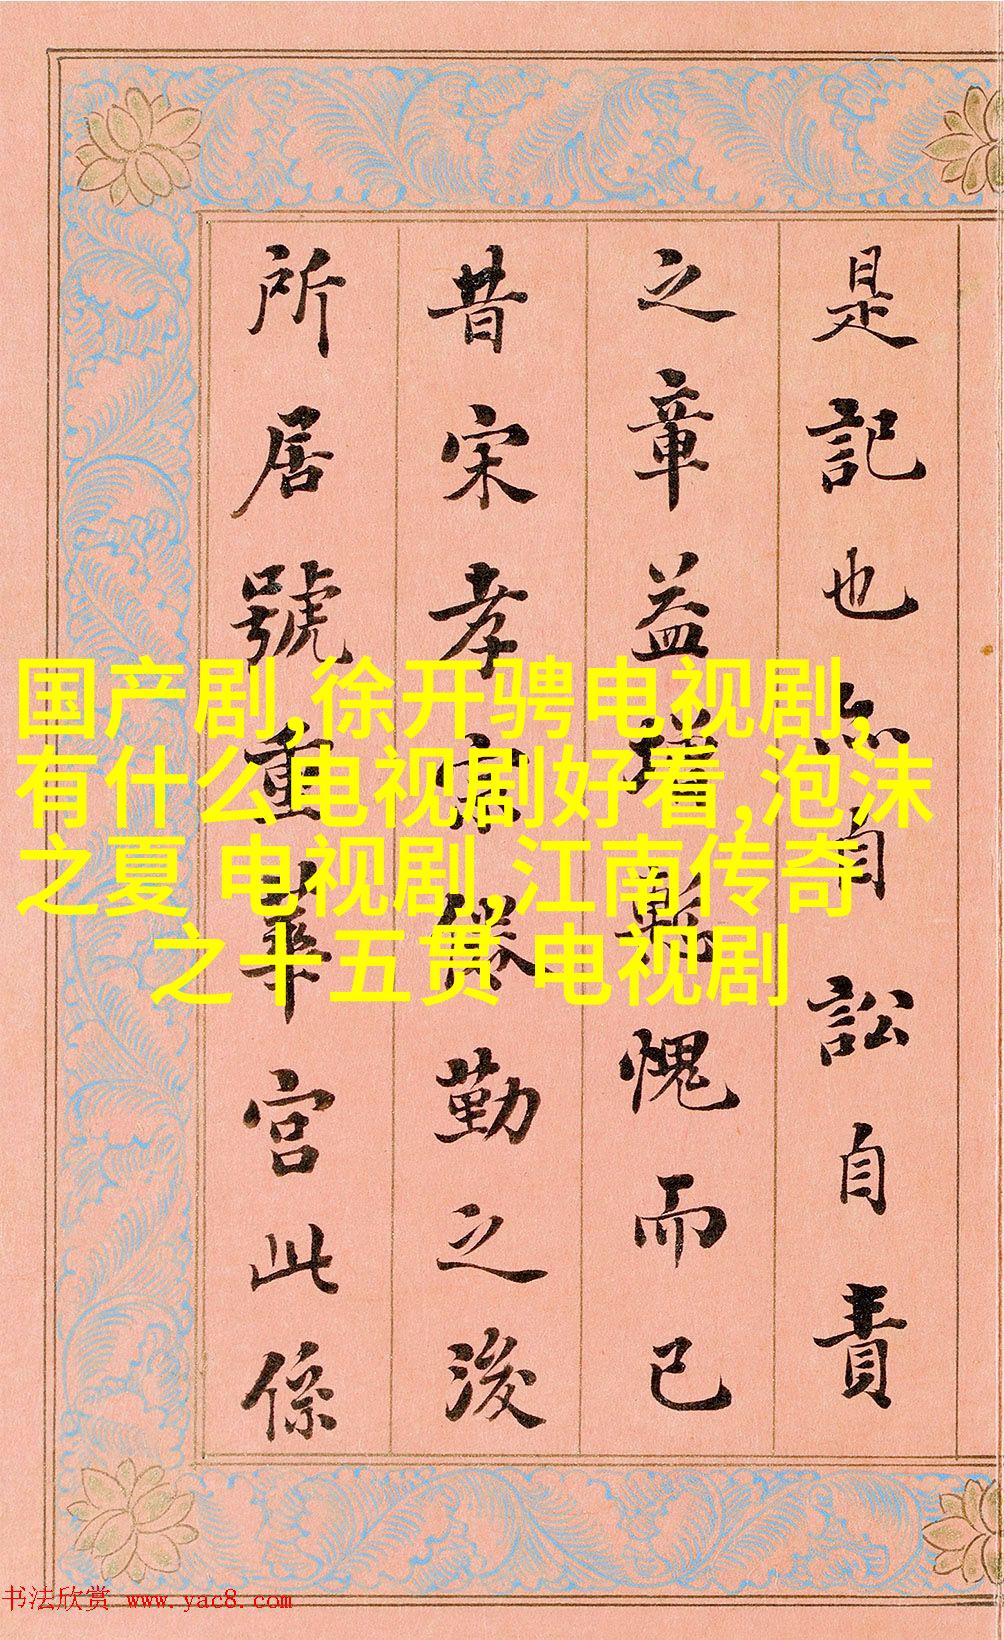 是記也亦自訟自責
之章益增慙愧而已
昔宋孝宗倦勤之後
所居號重華宮此係
国产剧,徐开骋电视剧,
有什么电视剧好看,泡沫
之夏 电视剧,江南传奇
之十五贯 电视剧
书法欣赏 www.yac8.com